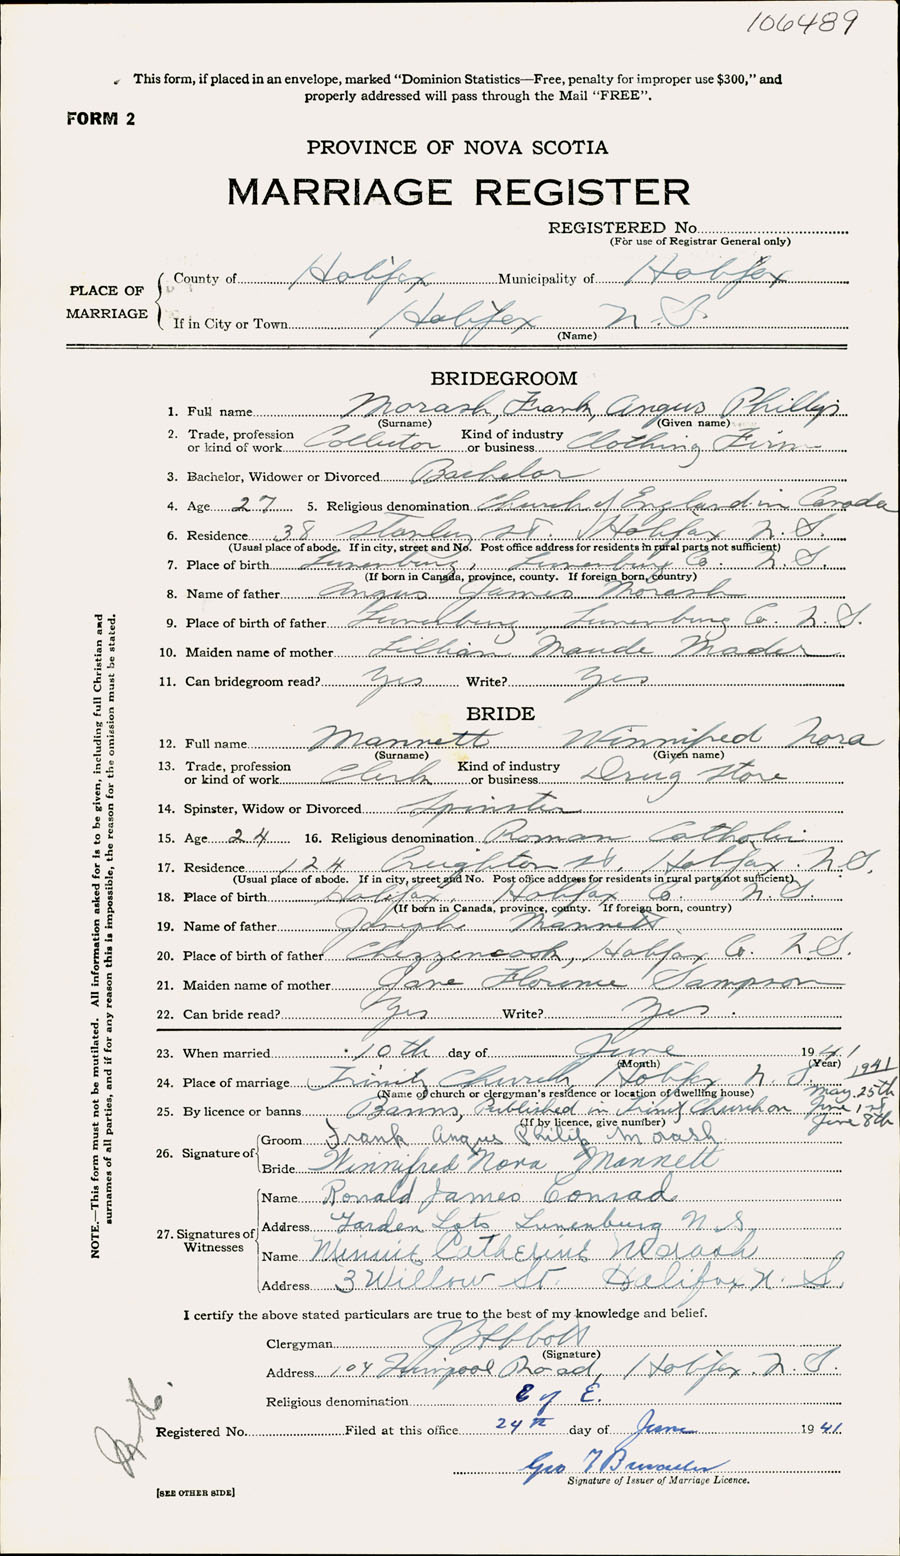 106489
This form, if placed in an envelope, marked "Dominion Statistics—Free, penalty for improper use $300," and
properly addressed will pass through the Mail "FREE".
FORM 2
PROVINCE OF NOVA SCOTIA
MARRIAGE REGISTER
REGISTERED No.
(For use of Registrar General only)
PLACE OF MARRIAGE
County of Halifax Municipality of Halifax
If in City or Town Halifax N.S.
(Name)
BRIDEGROOM
1. Full name Morash, Frank, Angus Phillip
(Surname) (Given name)
2. Trade, profession or kind of work Collector Kind of industry or business Clothing Firm
3. Bachelor, Widower or Divorced Bachelor
4. Age 27 5. Religious denomination Church of England in Canada
6. Residence 38 Stanley St. Halifax N.S.
(Usual place of abode. If in city, street and No. Post office address for residents in rural parts not sufficient)
7. Place of birth Lunenburg, Lunenburg Co. N.S.
(If born in Canada, province, county. If foreign born, country)
8. Name of father Angus James Morash
9. Place of birth of father Lunenburg, Lunenburg Co. N.S.
10. Maiden name of mother Lillian Maude Mader
11. Can bridegroom read? Yes Write? Yes
BRIDE
12. Full name Mannett Winnifred Nora
(Surname) (Given name)
13. Trade, profession or kind of work Clerk Kind of industry or business Drug Store
14. Spinster, Widow or Divorced Spinster
15. Age 24 16. Religious denomination Roman Catholic
17. Residence 124 Creighton St, Halifax N.S.
(Usual place of abode. If in city, street and No. Post office address for residents in rural parts not sufficient)
18. Place of birth Halifax, Halifax Co. N.S.
(If born in Canada, province, county. If foreign born, country)
19. Name of father Joseph Mannett
20. Place of birth of father Chezzencook, Halifax Co. N.S.
21. Maiden name of mother Jane Florence Sampson
22. Can bride read? Yes Write? Yes
23. When married 10th day of June 1941
(Month) (Year)
24. Place of marriage Trinity Church, Halifax N.S.
(Name of church or clergyman's residence or location of dwelling house)
25. By licence or banns Banns, Published in Trinity Church on 1941 May 25th June 1st June 8th
(If by licence, give number)
26. Signature of
Groom Frank Angus Philip Morash
Bride Winnifred Nora Mannett
27. Signatures of Witnesses
Name Ronald James Conrad
Address Garden Lots Lunenburg N.S.
Name Minnie Catherine Morash
Address 3 Willow St. Halifax N.S.
I certify the above stated particulars are true to the best of my knowledge and belief.
Clergyman
(Signature)
Address 104 Road, Halifax N.S.
Religious denomination C of E.
Registered No. Filed at this office 24th day of June 1941
Geo
Signature of Issuer of Marriage Licence.
[SEE OTHER SIDE]
NOTE.—This form must not be mutilated. All information asked for is to be given, including full Christian and
surnames of all parties, and if for any reason this is impossible, the reason for the omission must be stated.